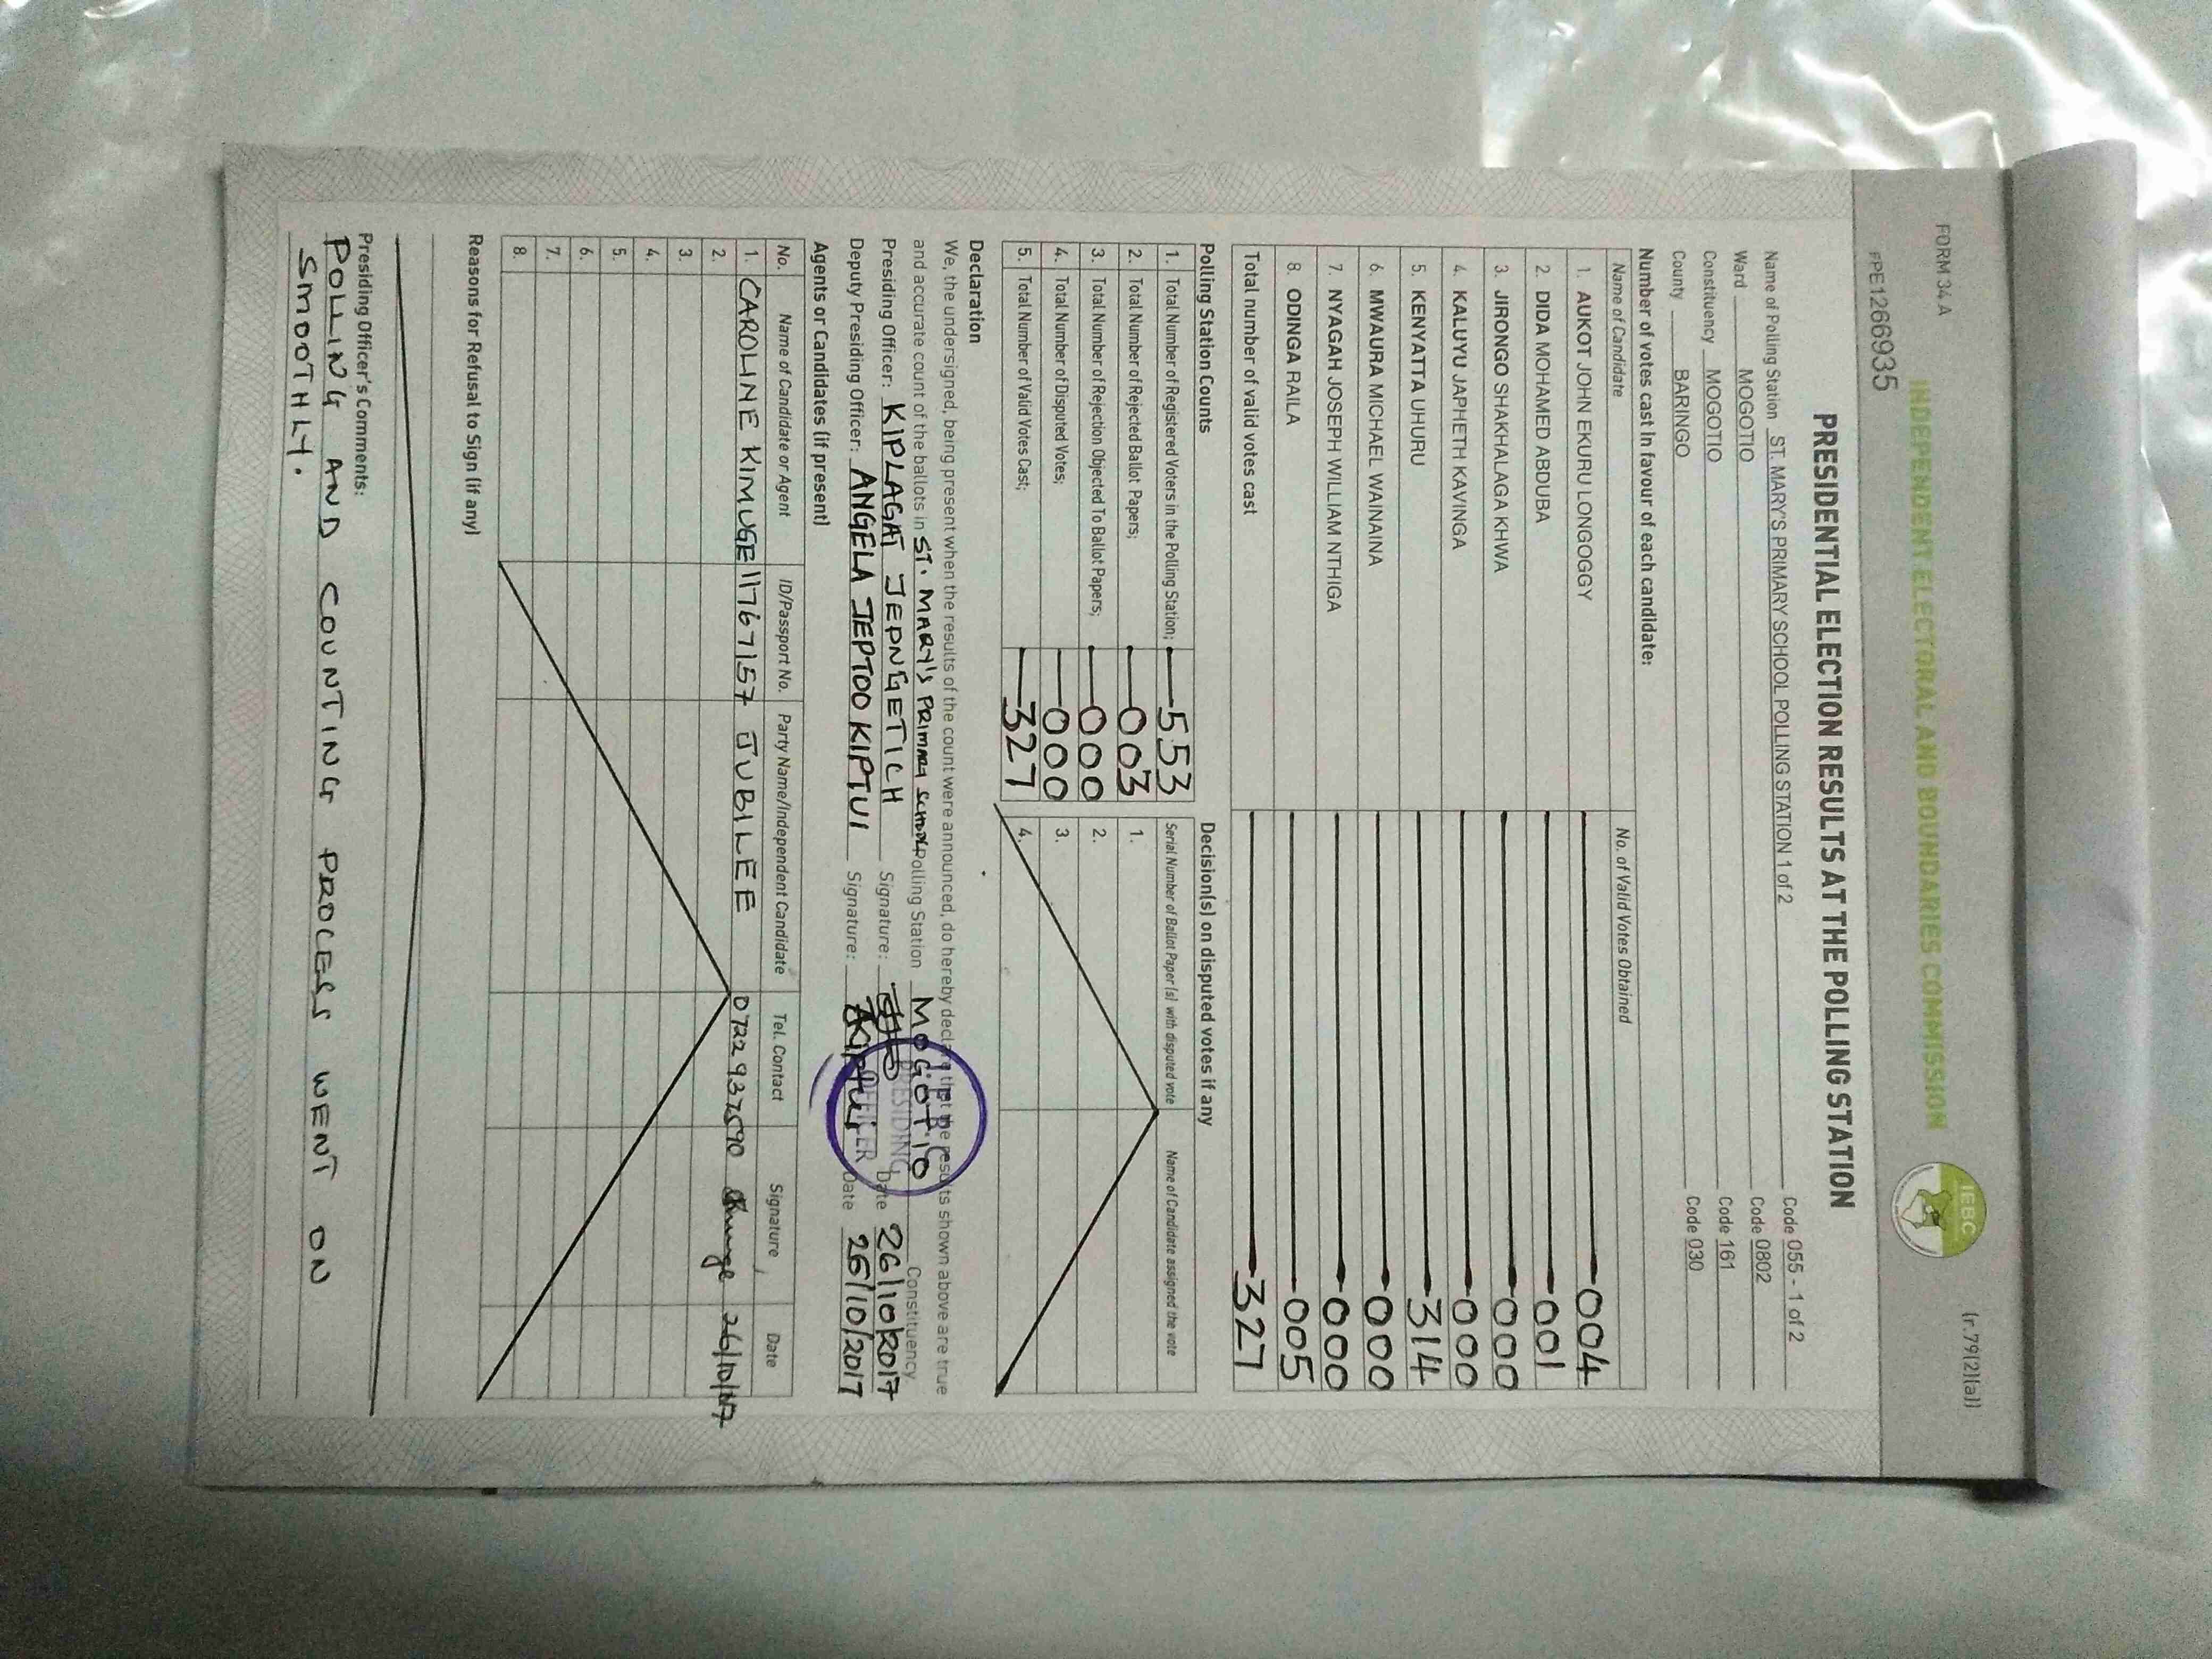 FORM 34 A
(r.79(2)(a))
INDEPENDENT ELECTORAL AND BOUNDARIES COMMISSION
IEBC
PRESIDENTIAL ELECTION RESULTS AT THE POLLING STATION
Name of Polling Station ST. MARY'S PRIMARY SCHOOL POLLING STATION 1 of 2 Code 055 - 1 of 2
Ward MOGOTIO Code 0802
Constituency MOGOTIO Code 161
County BARINGO Code 030
Number of votes cast in favour of each candidate:
Name of Candidate No. of Valid Votes Obtained
1. AUKOT JOHN EKURU LONGOGGY 004
2. DIDA MOHAMED ABDUBA 001
3. JIRONGO SHAKHALAGA KHWA 000
4. KALUYU JAPHETH KAVINGA 000
5. KENYATTA UHURU 314
6. MWAURA MICHAEL WAINAINA 000
7. NYAGAH JOSEPH WILLIAM NTHIGA 000
8. ODINGA RAILA 005
Total number of valid votes cast 327
Polling Station Counts Decision(s) on disputed votes if any
1. Total Number of Registered Voters in the Polling Station; 553 Serial Number of Ballot Paper(s) with disputed vote Name of Candidate assigned the vote
2. Total Number of Rejected Ballot Papers; 003 1.
3. Total Number of Rejection Objected To Ballot Papers; 000 2.
4. Total Number of Disputed Votes; 000 3.
5. Total Number of Valid Votes Cast; 327 4.
Declaration
We, the undersigned, being present when the results of the count were announced, do hereby declare that the results shown above are true
and accurate count of the ballots in ST. MARY'S PRIMARY SCHOOL Polling Station MOGOTIO Constituency
Presiding Officer: KIPLAGAT JEPNGETICH Signature: Date 26/10/2017
Deputy Presiding Officer: ANGELA JEPTOO KIPTUI Signature: AKiptui Date 26/10/2017
PRESIDING
Agents or Candidates (if present)
No. Name of Candidate or Agent ID/Passport No. Party Name/Independent Candidate Tel. Contact Signature Date
1. CAROLINE KIMUGE 11767157 JUBILEE 26/10/17
2.
3.
4.
5.
6.
7.
8.
Reasons for Refusal to Sign (if any)
Presiding Officer's Comments:
POLLING AND COUNTING PROCESS WENT ON
SMOOTHLY.